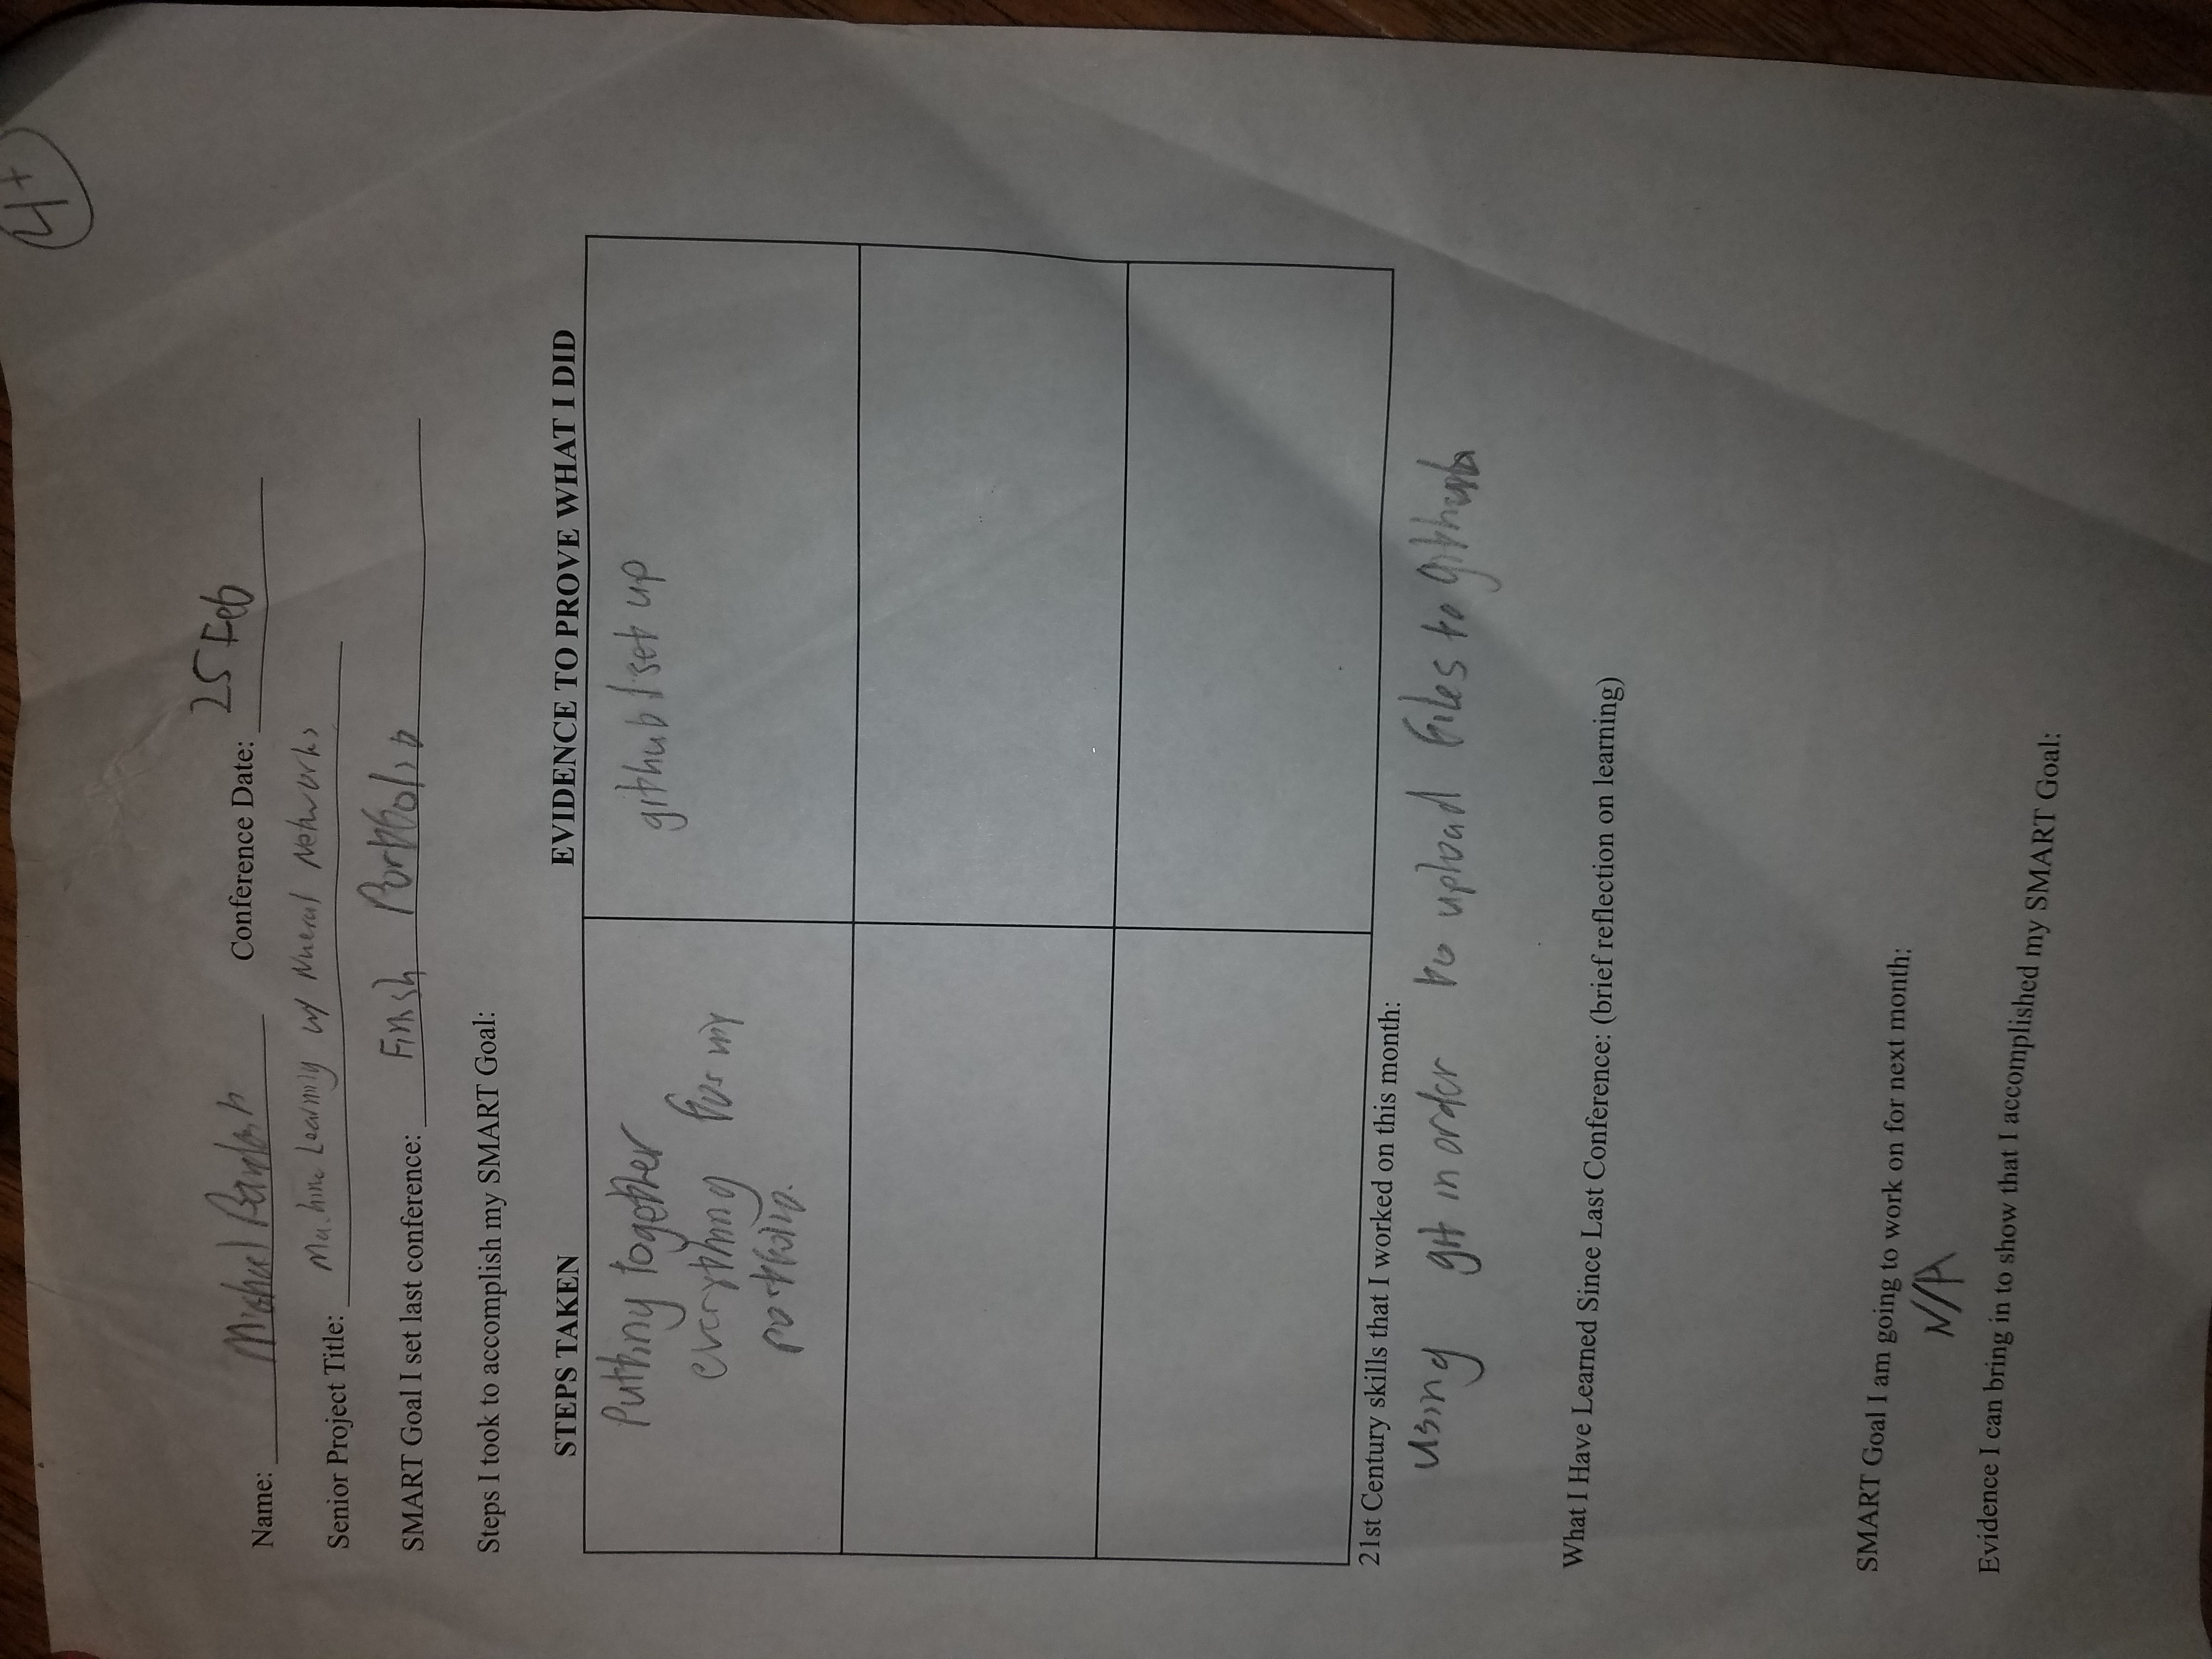 4+
Name: Michael Conference Date: 25 Feb
Senior Project Title: Machine Learning w/ Nueral Networks
SMART Goal I set last conference: Finish Portfolio
Steps I took to accomplish my SMART Goal:
STEPS TAKEN EVIDENCE TO PROVE WHAT I DID
Putting together github / set up
everything for my
portfolio.
21st Century skills that I worked on this month:
using git in order to upload files to github
What I Have Learned Since Last Conference: (brief reflection on learning)
SMART Goal I am going to work on for next month:
N/A
Evidence I can bring in to show that I accomplished my SMART Goal: